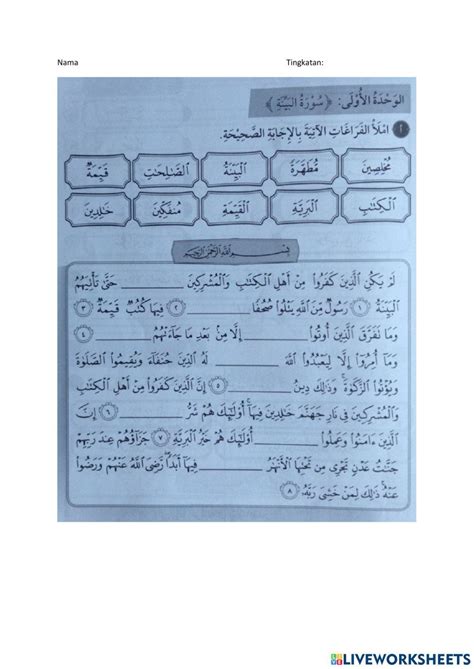 Nama Tingkatan:
الوَحْدَةُ الأُوْلَى: ﴿ سُوْرَةُ البَيِّنَةِ ﴾
أ امْلَأْ الفَرَاغَاتِ الآتِيَةَ بِالإِجَابَةِ الصَّحِيْحَةِ.
مُخْلِصِينَ مُّطَهَّرَةً ٱلْبَيِّنَةُ ٱلصَّٰلِحَٰتِ قَيِّمَةٌ
ٱلْكِتَٰبَ ٱلْبَرِيَّةِ ٱلْقَيِّمَةِ مُنفَكِّينَ خَٰلِدِينَ
بِسْمِ ٱللَّهِ ٱلرَّحْمَٰنِ ٱلرَّحِيمِ
لَمْ يَكُنِ ٱلَّذِينَ كَفَرُوا۟ مِنْ أَهْلِ ٱلْكِتَٰبِ وَٱلْمُشْرِكِينَ ________ حَتَّىٰ تَأْتِيَهُمُ
ٱلْبَيِّنَةُ ١ رَسُولٌ مِّنَ ٱللَّهِ يَتْلُوا۟ صُحُفًا ________ ٢ فِيهَا كُتُبٌ قَيِّمَةٌ ٣
وَمَا تَفَرَّقَ ٱلَّذِينَ أُوتُوا۟ ________ إِلَّا مِنۢ بَعْدِ مَا جَآءَتْهُمُ ________ ٤
وَمَآ أُمِرُوٓا۟ إِلَّا لِيَعْبُدُوا۟ ٱللَّهَ ________ لَهُ ٱلدِّينَ حُنَفَآءَ وَيُقِيمُوا۟ ٱلصَّلَوٰةَ
وَيُؤْتُوا۟ ٱلزَّكَوٰةَ ۚ وَذَٰلِكَ دِينُ ________ ٥ إِنَّ ٱلَّذِينَ كَفَرُوا۟ مِنْ أَهْلِ ٱلْكِتَٰبِ
وَٱلْمُشْرِكِينَ فِى نَارِ جَهَنَّمَ خَٰلِدِينَ فِيهَآ ۚ أُو۟لَٰٓئِكَ هُمْ شَرُّ ________ ٦ إِنَّ
ٱلَّذِينَ ءَامَنُوا۟ وَعَمِلُوا۟ ________ أُو۟لَٰٓئِكَ هُمْ خَيْرُ ٱلْبَرِيَّةِ ٧ جَزَآؤُهُمْ عِندَ رَبِّهِمْ
جَنَّٰتُ عَدْنٍ تَجْرِى مِن تَحْتِهَا ٱلْأَنْهَٰرُ ________ فِيهَآ أَبَدًا ۖ رَّضِىَ ٱللَّهُ عَنْهُمْ وَرَضُوا۟
عَنْهُ ۚ ذَٰلِكَ لِمَنْ خَشِىَ رَبَّهُۥ ٨
LIVEWORKSHEETS